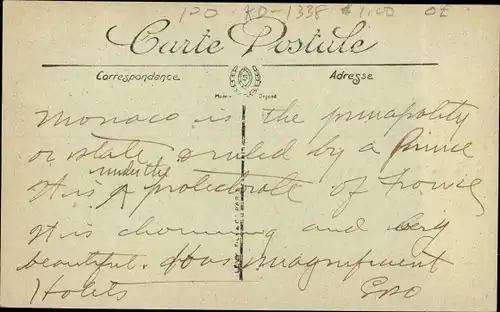 120 KD-1338
Carte Postale
Correspondance Adresse
Monaco is the principality
or state & ruled by a Prince
under the
It is a protectorate of France
It is charming and very
beautiful. Has magnificent
Hotels